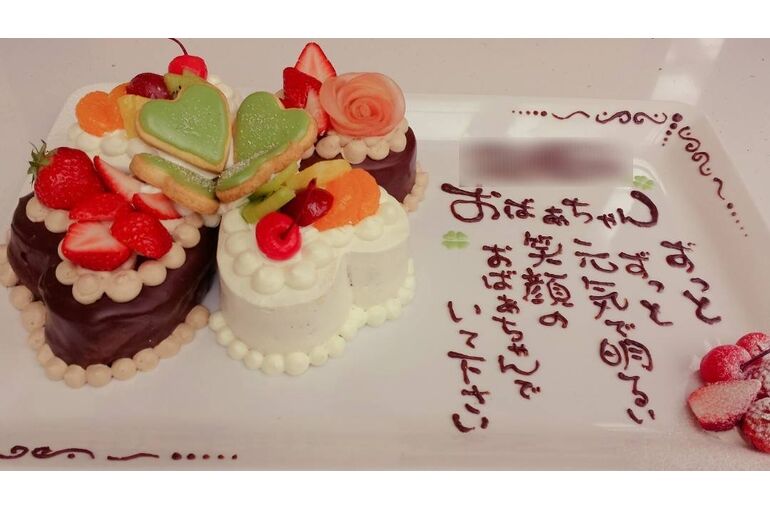 おばぁちゃん
ずっと
ずっと
元気で明るい
笑顔の
おばぁちゃんで
いて下さい